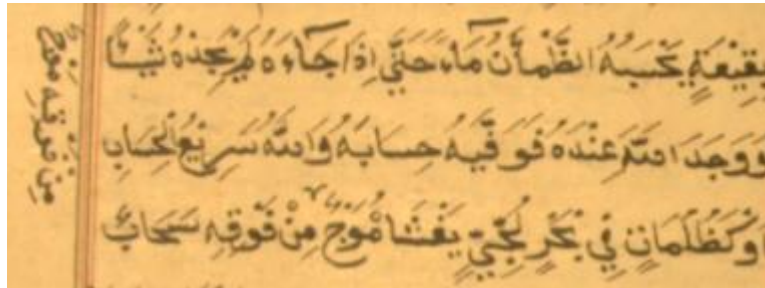 بِقِيعَةٍ يَحْسَبُهُ الظَّمْأَنُ مَاءً حَتَّى إِذَا جَاءَهُ لَمْ يَجِدْهُ شَيْئًا
وَوَجَدَ اللَّهَ عِنْدَهُ فَوَفَّيهُ حِسَابَهُ وَاللَّهُ سَرِيعُ الْحِسَابِ
أَوْ كَظُلُمَاتٍ فِي بَحْرٍ لُجِّيٍّ يَغْشَاهُ مَوْجٌ مِنْ فَوْقِهِ سَحَابٌ
مِنْ فَوْقِهِ مَوْجٌ